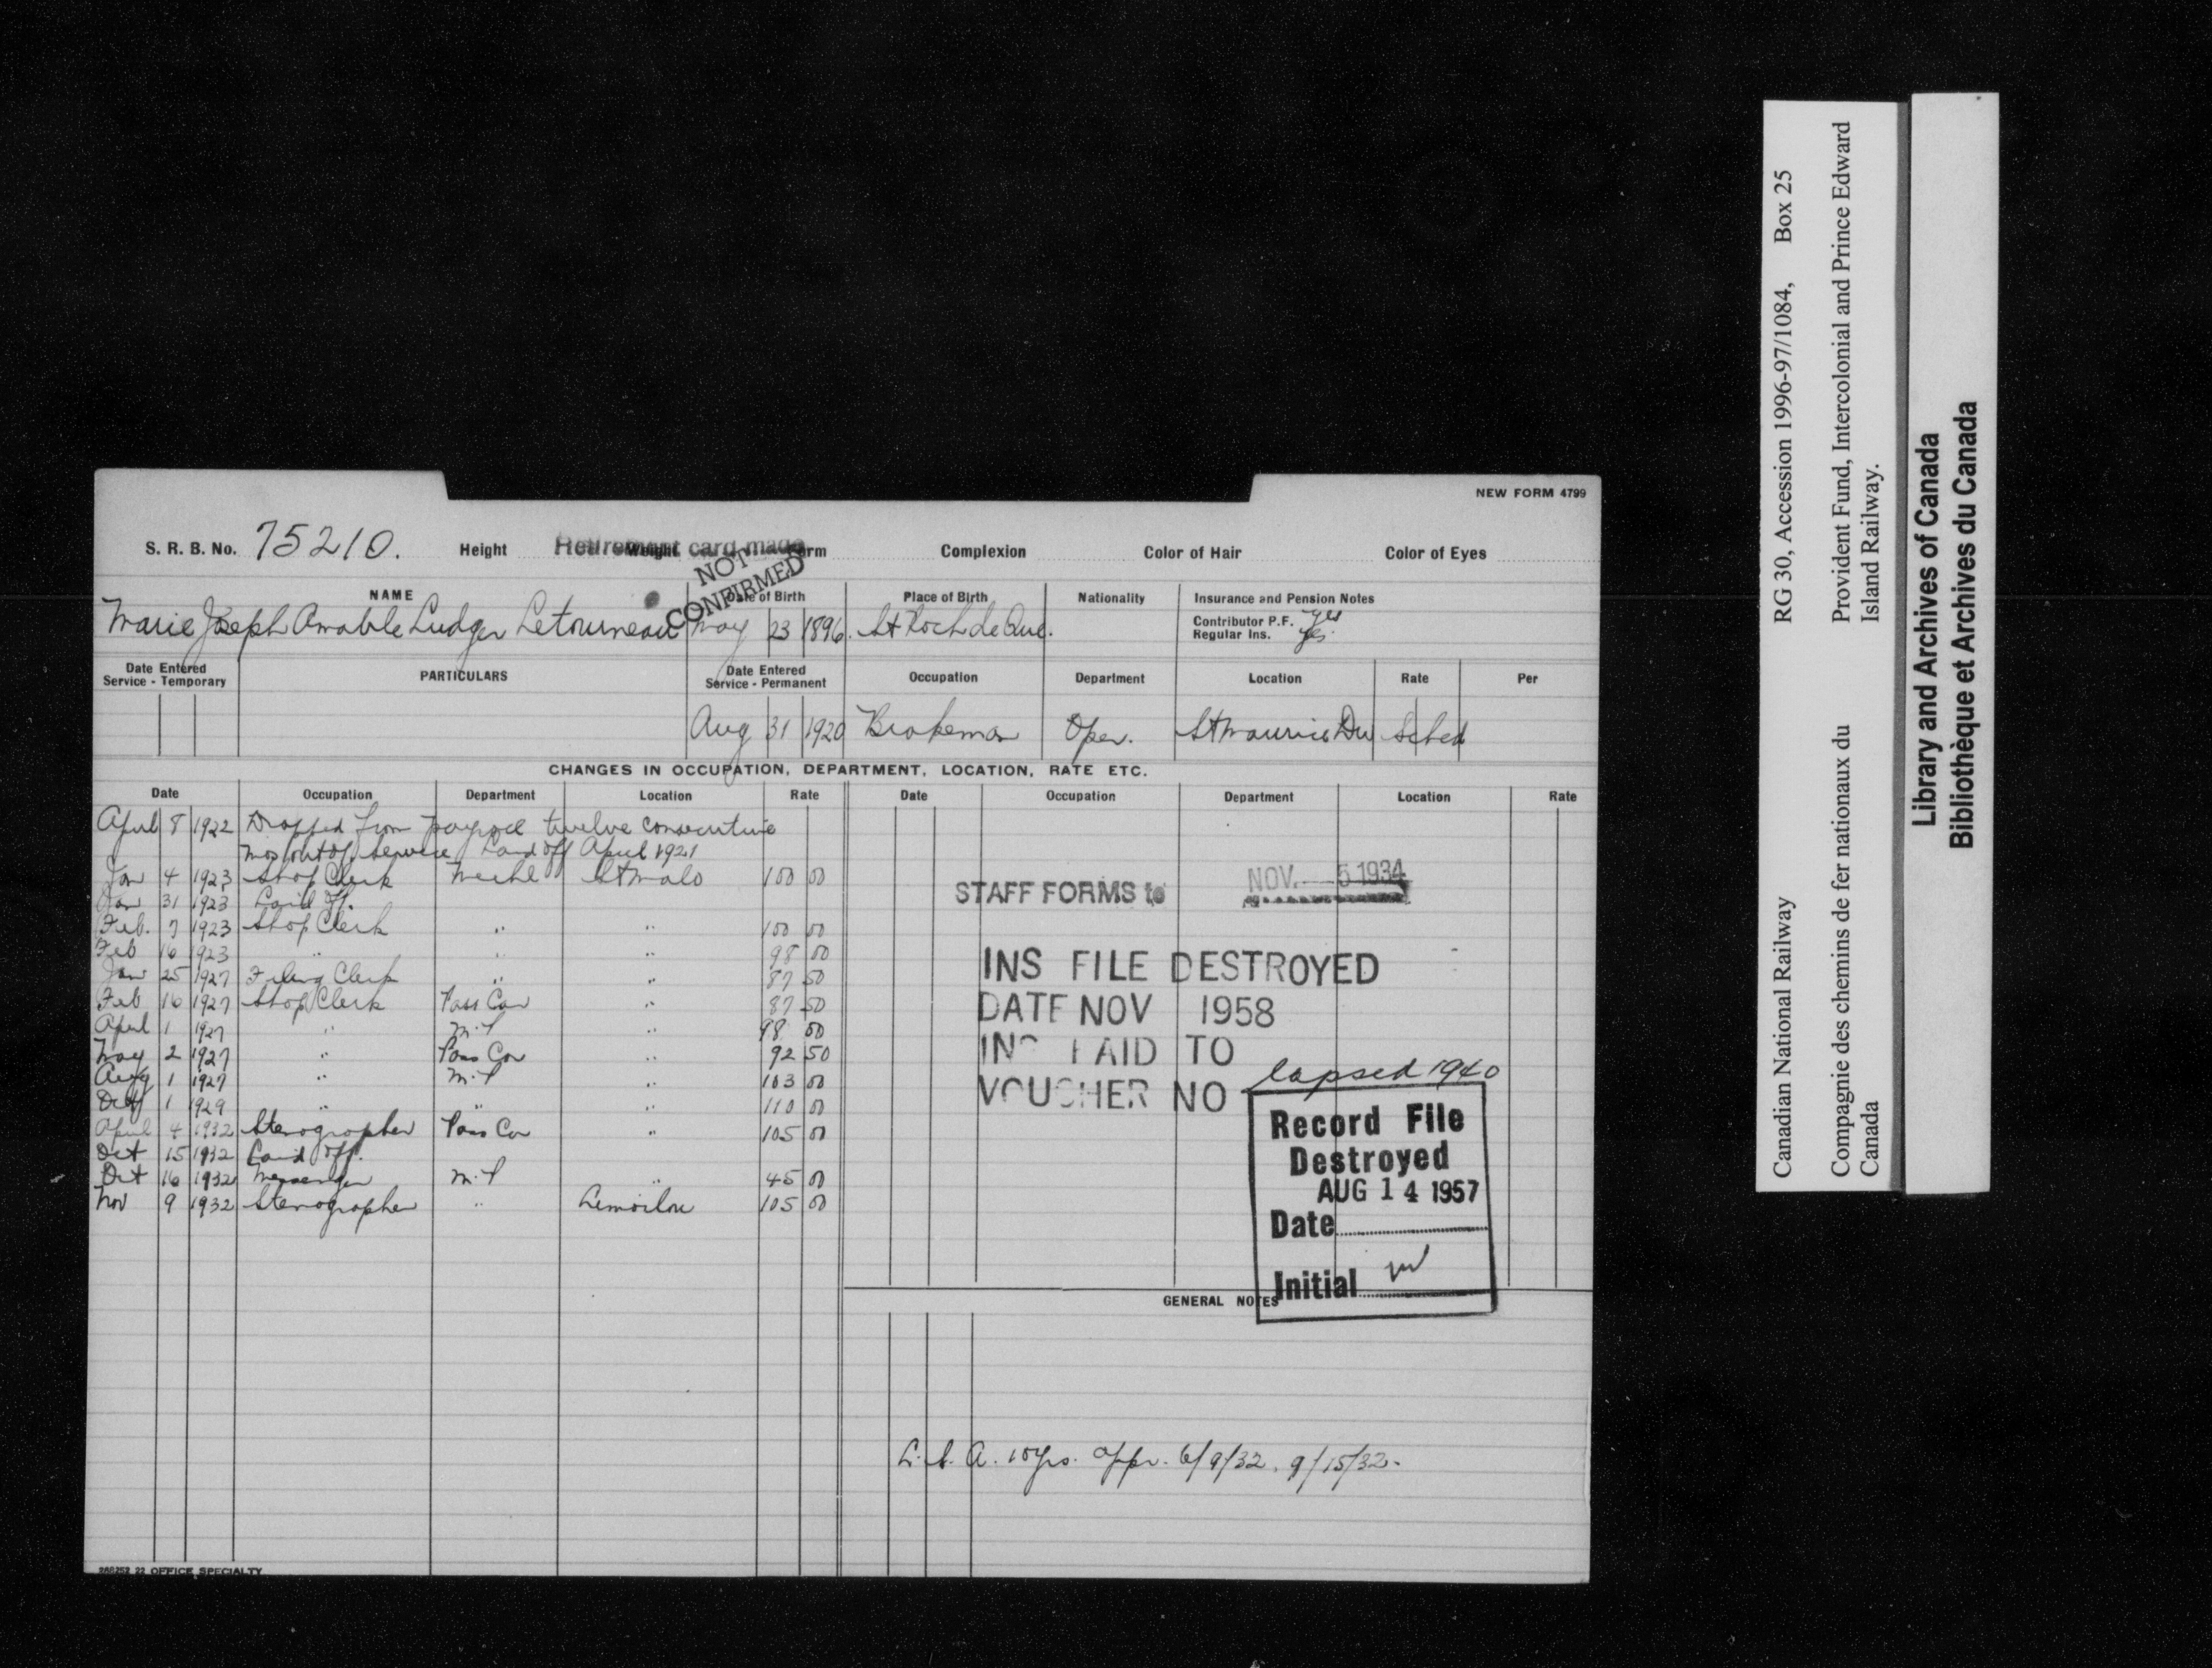 NEW FORM 4799
S. R. B. No. 75210. Height Weight Form Complexion Color of Hair Color of Eyes
Retirement card made
NOT CONFIRMED
NAME Date of Birth Place of Birth Nationality Insurance and Pension Notes
Marie Joseph Amable Ludger Letourneau May 23 1896. St Roch de Que.
Contributor P.F. Yes
Regular Ins. Yes.
Date Entered Service - Temporary PARTICULARS Date Entered Service - Permanent Occupation Department Location Rate Per
Aug 31 1920 Brakeman Oper. St Maurice Div Sched
CHANGES IN OCCUPATION, DEPARTMENT, LOCATION, RATE ETC.
Date Occupation Department Location Rate Date Occupation Department Location Rate
April 8 1922 Dropped from payroll twelve consecutive
mos out of service Laid off April 1921
Jan 4 1923 Shop Clerk Mechl St Malo 100 00
Jan 31 1923 Laid off.
Feb. 7 1923 Shop Clerk " " 100 00
Feb 16 1923 " " " 98 00
Jan 25 1927 Filing Clerk " " 87 50
Feb 16 1927 Shop Clerk Pass Car " 87 50
April 1 1927 " M.P " 98 00
May 2 1927 " Pass Car " 92 50
Aug 1 1927 " M.P " 103 00
Oct 1 1929 " " " 110 00
April 4 1932 Stenographer Pass Car " 105 00
Oct 15 1932 Laid off.
Oct 16 1932 Messenger M.P " 45 00
Nov 9 1932 Stenographer " Limoilou 105 00
STAFF FORMS to NOV. 5 1934
INS FILE DESTROYED
DATE NOV 1958
INS PAID TO
VOUCHER NO
lapsed 1940
Record File
Destroyed
AUG 14 1957
Date
Initial
GENERAL NOTES
L.S.A. 10yrs. appr. 6/9/32. 9/15/32.
OFFICE SPECIALTY
Canadian National Railway RG 30, Accession 1996-97/1084, Box 25
Compagnie des chemins de fer nationaux du Canada
Provident Fund, Intercolonial and Prince Edward Island Railway.
Library and Archives of Canada
Bibliothèque et Archives du Canada